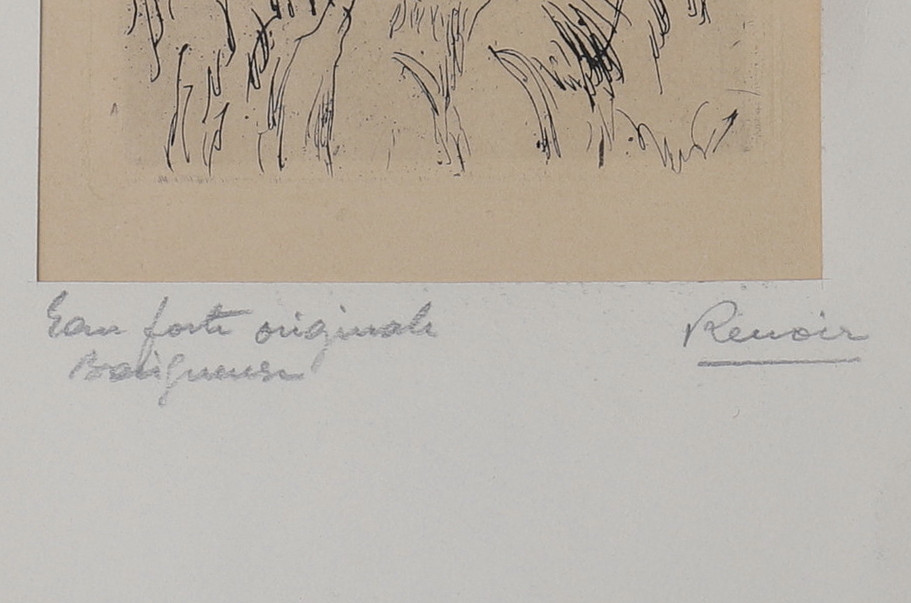 Eau forte originale
Baigneuse
Renoir